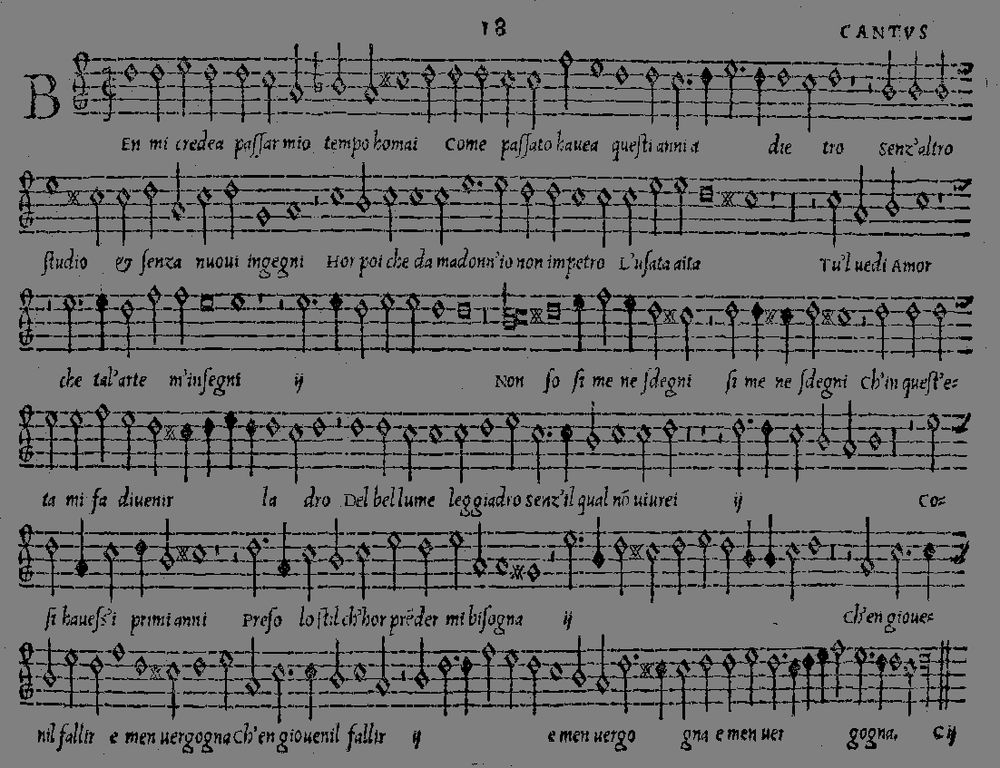 18
CANTVS
BEn mi credea paſſar mio tempo homai Come paſſato hauea queſti anni a die tro Senz'altro
ſtudio & ſenza nuoui ingegni Hor poi che da madonn'io non impetro L'uſata aita Tu'l uedi Amor
che tal'arte m'inſegni ij Non ſo ſi me ne ſdegni ſi me ne ſdegni Ch'in queſt'e=
ta mi fa diuenir la dro Del bel lume leggiadro senz'il qual nõ uiurei ij Co=
ſi haueſs'i primi anni Preſo lo ſtil ch'hor prẽder mi biſogna ij Ch'en gioue=
nil fallir e men uergogna Ch'en giouenil fallir ij e men uergo gna e men uer gogna. C ij